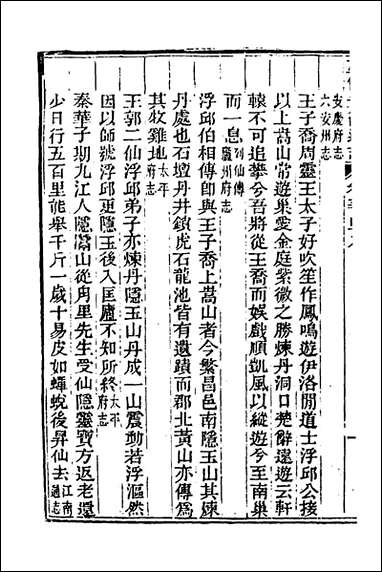 安慶府志
六安州志
王子喬周靈王太子好吹笙作鳳鳴遊伊洛閒道士浮邱公接
以上嵩山常遊巢愛金庭紫微之勝煉丹洞口楚辭遠遊云軒
轅不可追攀兮吾將從王喬而娛戲順凱風以縱遊兮至南巢
而一息列仙傳廬州府志
浮邱伯相傳卽與王子喬上嵩山者今繁昌邑南隱玉山其煉
丹處也石壇丹井鎖虎石龍池皆有遺蹟而郡北黃山亦傳爲
其牧雞地太平府志
王郭二仙浮邱弟子亦煉丹隱玉山丹成一山震動若浮漚然
因以師號浮邱更隱玉後入匡廬不知所終太平府志
秦華子期九江人隱嵩山從甪里先生受仙隱靈寶方返老還
少日行五百里能舉千斤一歲十易皮如蟬蛻後昇仙去江南通志